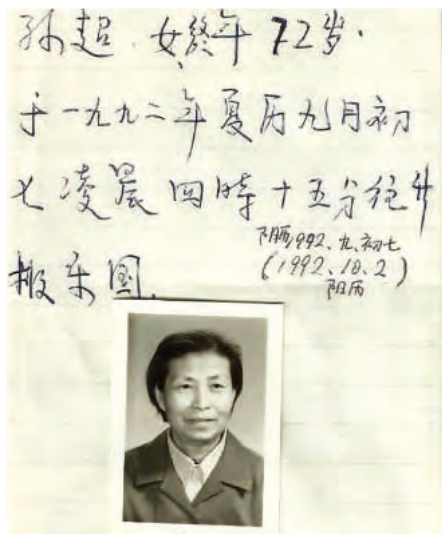 孙超．女，终年72岁．
于一九九二年夏历九月初
七凌晨四时十五分往升
极乐国．
阴历1992、九、初七
(1992.10.2)
阳历